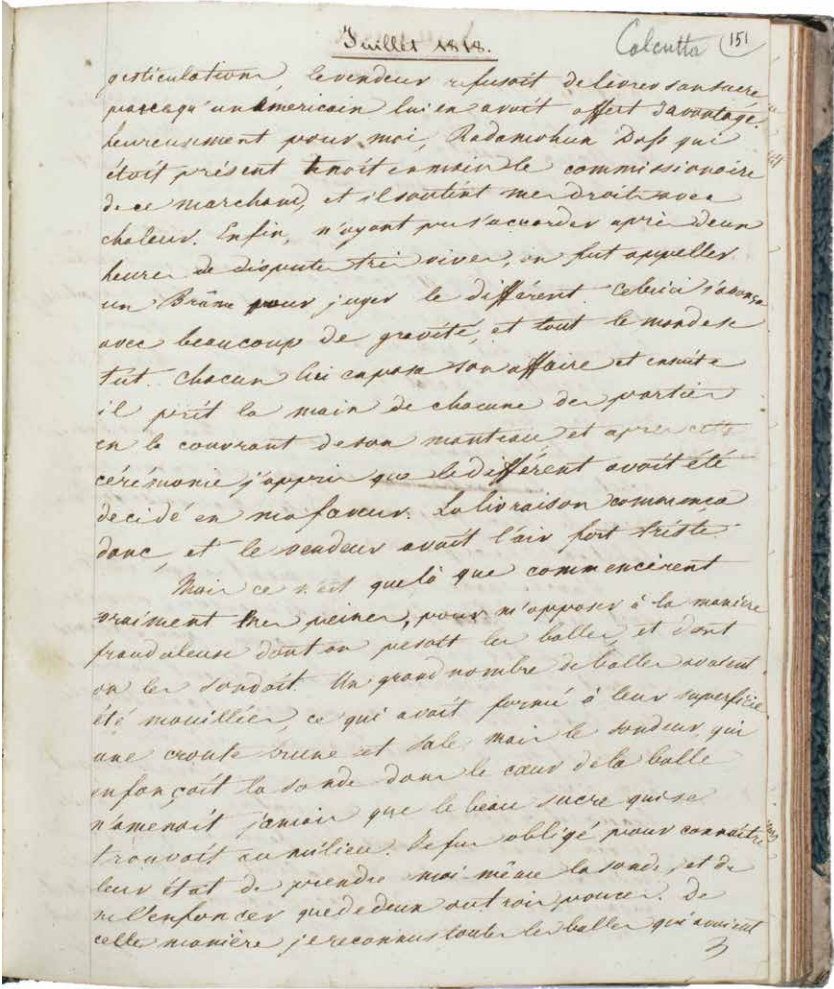 Juillet 1818.
Calcutta
151
gesticulations, le vendeur refusoit de livrer son sucre
parcequ'un Americain lui en avoit offert davantage.
heureusement pour moi, Radamohun Dass qui
étoit présent tenoit en main le commissionaire
de ce marchand, et il soutint mes droits avec
chaleur. Enfin, n'ayant pu s'accorder après deux
heures de disputes très vives, on fut appeller
un Brâme pour juger le différent. celui ci s'avança
avec beaucoup de gravité, et tout le monde se
tut. chacun lui exposa son affaire et ensuite
il prit la main de chacune des parties
en le couvrant de son manteau et apres cette
cérémonie j'appris que le différent avoit été
decidé en ma faveur. La livraison commença
donc, et le vendeur avait l'air fort triste.
Mais ce n'est que là que commencèrent
vraiment mes peines, pour m'opposer à la manière
frauduleuse dont on pesoit les balles, et dont
on les sondoit. Un grand nombre de balles avaient
été mouillées, ce qui avait formé à leur superficie
une croute brune et sale mais le sondeur qui
enfonçoit la sonde dans le cœur de la balle
n'amenoit jamais que le beau sucre qui se
trouvoit au milieu. Je fus obligé pour connaitre
leur état de prendre moi même la sonde, et de
ne l'enfoncer que de deux ou trois pouces. De
cette manière je reconnus toutes les balles qui avoient